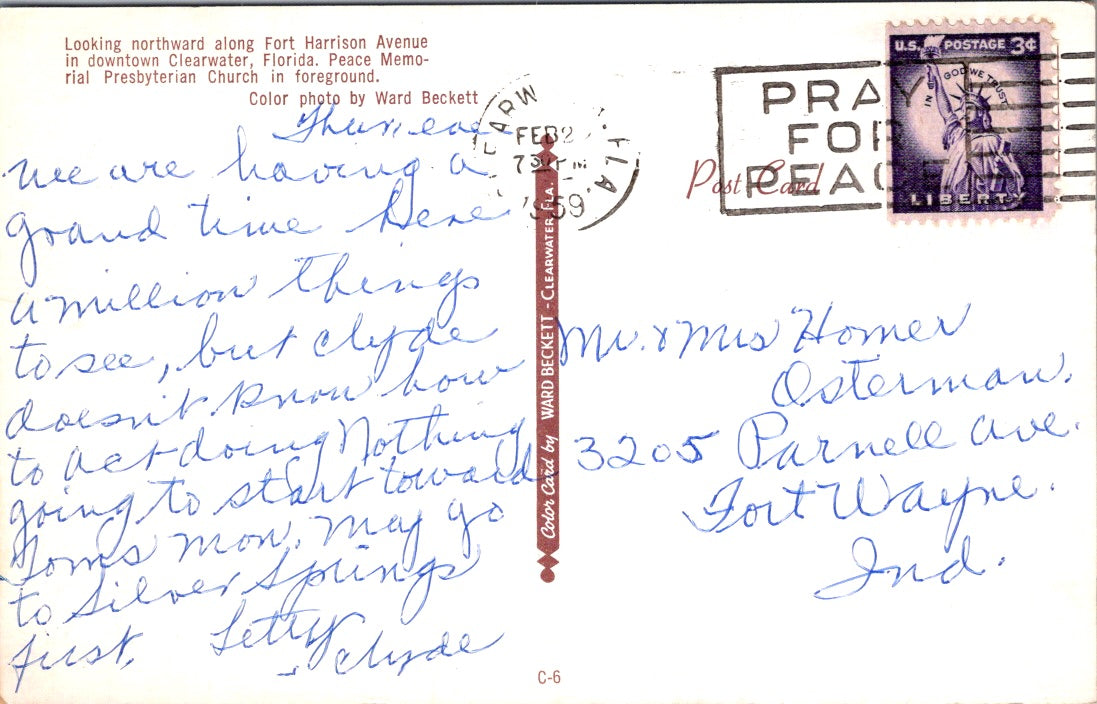 Looking northward along Fort Harrison Avenue
in downtown Clearwater, Florida. Peace Memo-
rial Presbyterian Church in foreground.
Color photo by Ward Beckett
Thur. eve
We are having a
grand time here
a million things
to see, but Clyde
doesn't know how
to act doing Nothing
going to start toward
Toms mon. May go
to Silver Springs
first.
Letty
- Clyde
FEB 2
7 30 PM
1959
FLA.
PRAY
FOR
PEACE
U.S. POSTAGE 3¢
IN GOD WE TRUST
LIBERTY
Post Card
Color Card by WARD BECKETT - CLEARWATER, FLA.
Mr. & Mrs Homer
Osterman.
3205 Parnell Ave.
Fort Wayne.
Ind.
C-6